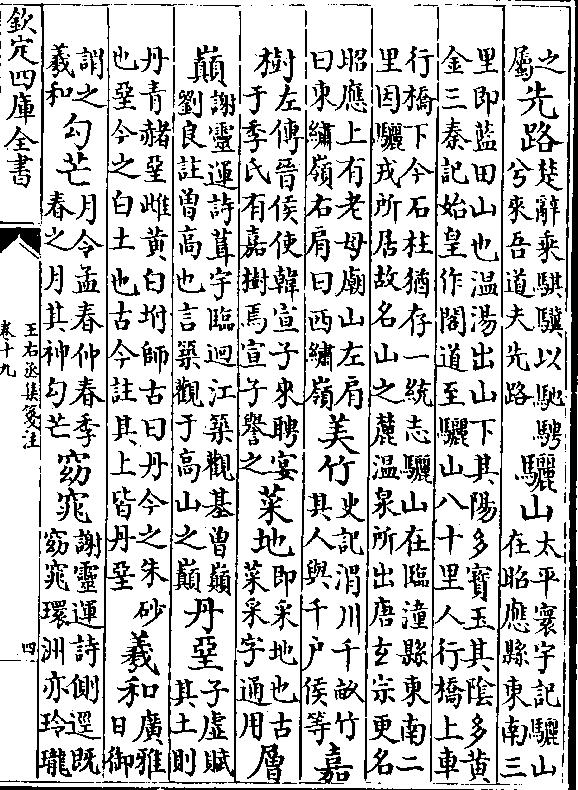 之屬先路楚辭乘騏驥以馳騁兮來吾道夫先路驪山太平寰宇記驪山在昭應縣東南三
里即藍田山也温湯出山下其陽多寳玉其陰多黄金三秦記始皇作閣道至驪山八十里人行橋上車
行橋下今石柱猶存一統志驪山在臨潼縣東南二里因驪戎所居故名山之麓温泉所出唐玄宗更名
昭應上有老母廟山左肩曰東繡嶺右肩曰西繡嶺美竹史記渭川千畝竹其人與千户侯等嘉
樹左傳晉侯使韓宣子來聘宴于季氏有嘉樹焉宣子譽之菜地即采地也古菜采字通用層
巔謝靈運詩葺宇臨迴江築觀基曽巔劉良註曽高也言築觀于高山之巔丹堊子虛賦其土則
丹青赭堊雌黄白坿師古曰丹今之朱砂也堊今之白土也古今註其上皆丹堊羲和廣雅日御
謂之羲和勾芒月令孟春仲春季春之月其神勾芒窈窕謝靈運詩側逕既窈窕環洲亦玲瓏
欽定四庫全書
王右丞集箋注
卷十九
四